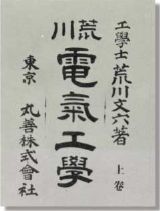 工學士 荒川文六著
上卷
荒川
電氣工學
東京 丸善株式會社